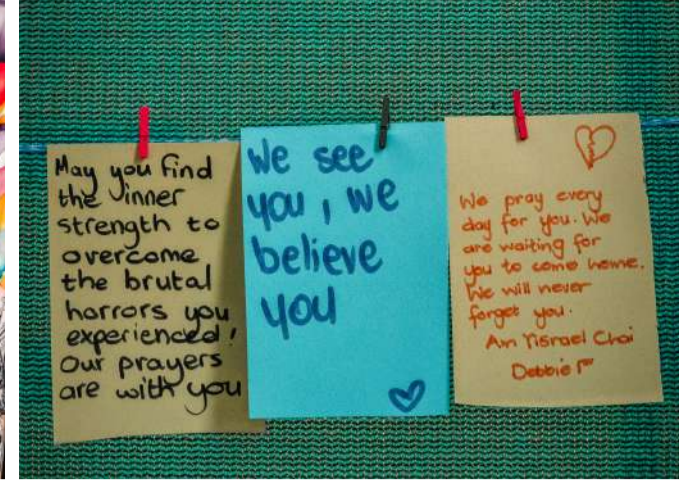 May you find
the inner
strength to
overcome
the brutal
horrors you
experienced!
Our prayers
are with you
We see
you, we
believe
you
We pray every
day for you. We
are waiting for
you to come home.
We will never
forget you.
Am Yisrael Chai
Debbie